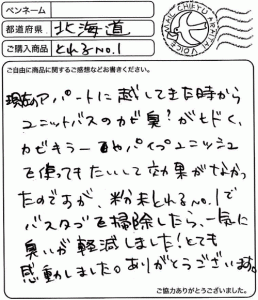 ペンネーム
都道府県 北海道
ご購入商品 とれるNo.1
MAN CHIEYU ARAHATA VOICE
ご自由に商品に関するご感想などお書きください。
現在のアパートに越してきた時から
ユニットバスのカビ臭?がヒドく、
カビキラーやパイプユニッシュ
を使ってもたいして効果がなかっ
たのですが、粉末とれるNo.1で
バスタブを掃除したら、一気に
臭いが軽減しました!とても
感動しました。ありがとうございます。
ご協力ありがとうございました。